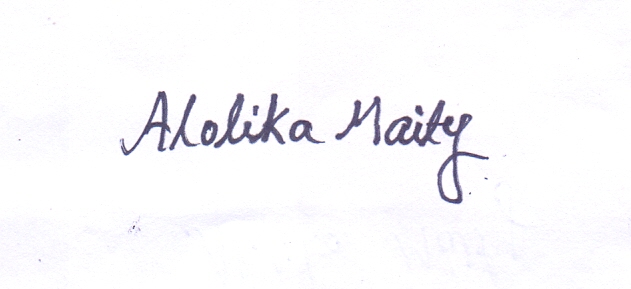 Alolika Maity